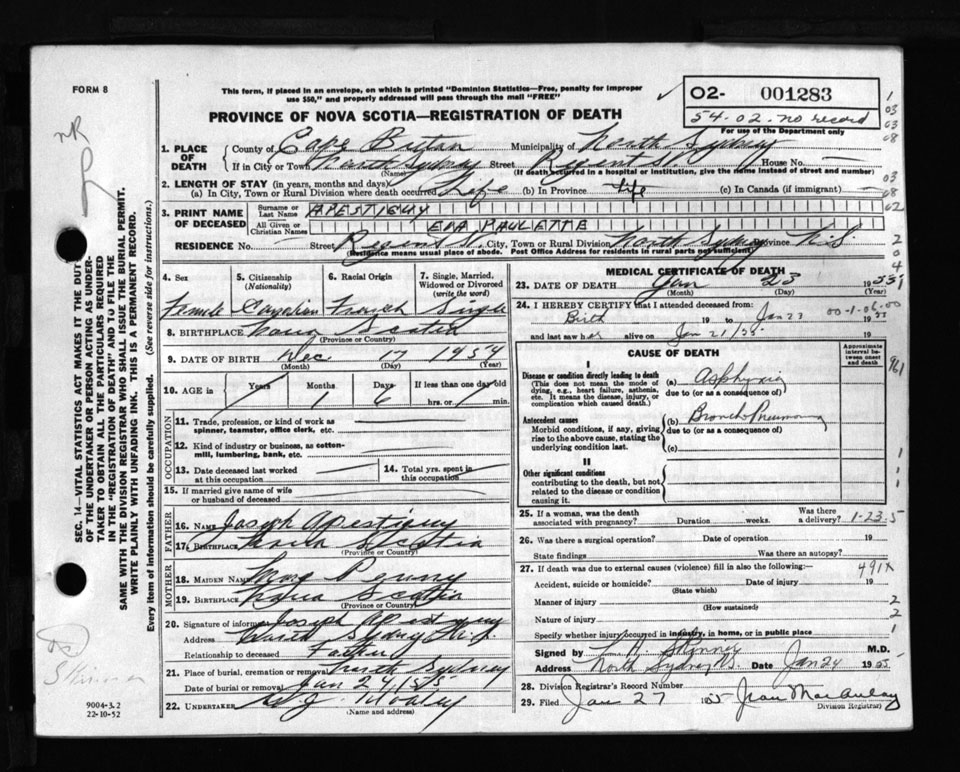 FORM 8
This form, if placed in an envelope, on which is printed "Dominion Statistics—Free, penalty for improper
use $50," and properly addressed will pass through the mail "FREE"
PROVINCE OF NOVA SCOTIA—REGISTRATION OF DEATH
O2- 001283
54-02-no record
For use of the Department only
1. PLACE OF DEATH
County of Cape Breton Municipality of North Sydney
If in City or Town North Sydney Street Regent St. House No. —
(Name) (If death occurred in a hospital or institution, give the name instead of street and number)
2. LENGTH OF STAY (in years, months and days)
(a) In City, Town or Rural Division where death occurred Life (b) In Province Life (c) In Canada (if immigrant) —
3. PRINT NAME OF DECEASED
Surname or Last Name APESTIGUY
All Given or Christian Names ENA PAULETTE
RESIDENCE No. — Street Regent St. City, Town or Rural Division North Sydney Province N.S.
(Residence means usual place of abode. Post Office Address for residents in rural parts not sufficient)
4. Sex
Female
5. Citizenship
(Nationality)
Canadian
6. Racial Origin
French
7. Single, Married,
Widowed or Divorced
(write the word)
Single
8. BIRTHPLACE Nova Scotia
(Province or Country)
9. DATE OF BIRTH Dec 17 1954
(Month) (Day) (Year)
10. AGE in Years Months Days If less than one day old
1 6 hrs. or min.
OCCUPATION
11. Trade, profession, or kind of work as
spinner, teamster, office clerk, etc.
12. Kind of industry or business, as cotton-
mill, lumbering, bank, etc.
13. Date deceased last worked
at this occupation
14. Total yrs. spent in
this occupation
15. If married give name of wife
or husband of deceased
FATHER
16. Name Joseph Apestiguy
17. Birthplace Nova Scotia
(Province or Country)
MOTHER
18. Maiden Name Mary Penny
19. Birthplace Nova Scotia
(Province or Country)
20. Signature of informant Joseph Apestiguy
Address North Sydney N.S.
Relationship to deceased Father
21. Place of burial, cremation or removal North Sydney
Date of burial or removal Jan 24/55
22. UNDERTAKER
(Name and address)
MEDICAL CERTIFICATE OF DEATH
23. DATE OF DEATH Jan 23 1955
(Month) (Day) (Year)
24. I HEREBY CERTIFY that I attended deceased from
Birth 19 to Jan 23 19 55
00-1-06-00
and last saw her alive on Jan 21/55 19
CAUSE OF DEATH
Approximate interval between onset and death
Disease or condition directly leading to death
(This does not mean the mode of
dying, e.g., heart failure, asthenia,
etc. It means the disease, injury, or
complication which caused death.)
(a) Asphyxia
due to (or as a consequence of)
Antecedent causes
Morbid conditions, if any, giving
rise to the above cause, stating the
underlying condition last.
(b) Broncho Pneumonia
due to (or as a consequence of)
(c)
II
Other significant conditions
contributing to the death, but not
related to the disease or condition
causing it.
25. If a woman, was the death
associated with pregnancy? Duration weeks. Was there
a delivery? 1-23-5
26. Was there a surgical operation? Date of operation 19
State findings Was there an autopsy?
27. If death was due to external causes (violence) fill in also the following: 491X
Accident, suicide or homicide? Date of injury 19
(State which)
Manner of injury
(How sustained)
Nature of injury
Specify whether injury occurred in industry, in home, or in public place
Signed by Skinner M.D.
Address North Sydney N.S. Date Jan 24 1955
28. Division Registrar's Record Number
29. Filed Jan 27 1955 Jean MacAulay
Division Registrar)
SEC. 14—VITAL STATISTICS ACT MAKES IT THE DUTY
OF THE UNDERTAKER OR PERSON ACTING AS UNDER-
TAKER TO OBTAIN ALL THE PARTICULARS REQUIRED
IN THE "REGISTRATION OF DEATH" AND TO FILE THE
SAME WITH THE DIVISION REGISTRAR WHO SHALL ISSUE THE BURIAL PERMIT.
WRITE PLAINLY WITH UNFADING INK. THIS IS A PERMANENT RECORD.
Every item of information should be carefully supplied. (See reverse side for instructions.)
nR
Skinner
9004-3.2
22-10-52
1
03
03
08
03
08
02
2
0
4
1
961
1
1
2
2
1